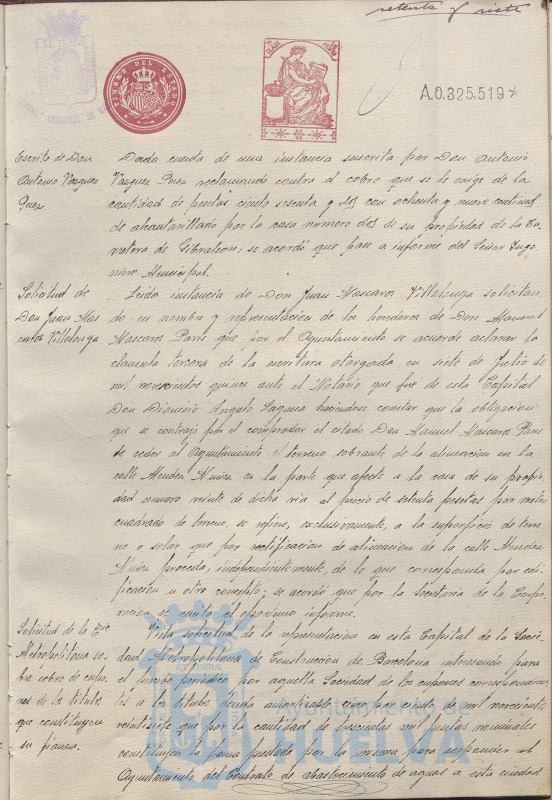 setenta y siete
TIMBRE DEL ESTADO
A.0.325.519
Escrito de Don
Antonio Vazquez
Perez
Dada cuenta de una instancia suscrita por Don Antonio
Vazquez Perez reclamando contra el cobro que se le exige de la
cantidad de pesetas ciento sesenta y dos con ochenta y nueve centimos
de alcantarillado por la casa numero dos de su propiedad de la Ca-
rretera de Gibraleon, se acordó que pase a informe del Señor Inge-
niero Municipal.
Solicitud de
Don Juan Mas
caros Villalonga
Leida instancia de Don Juan Mascaros Villalonga solicitan
do en nombre y representacion de los herederos de Don Manuel
Mascaros Paris que por el Ayuntamiento se acuerde aclarar la
clausula tercera de la escritura otorgada en siete de Julio de
mil novecientos quince ante el Notario que fue de esta Capital
Don Dionisio Angulo Laguna haciendose constar que la obligacion
que se contrajo por el comprador el citado Don Manuel Mascaros Paris
de ceder al Ayuntamiento el terreno sobrante de la alineacion en la
calle Mendez Nuñez en la parte que afecte a la casa de su propie-
dad numero veinte de dicha via al precio de setenta pesetas por metro
cuadrado de terreno, se refiere, exclusivamente, a la superficie de terre
no o solar que por rectificacion de alineacion de la calle Mendez
Nuñez proceda, independientemente, de lo que corresponda por edi-
ficacion u otro concepto; se acordó que por la Secretaria de la Corpo-
racion se emita el oportuno informe.
Solicitud de la Sdad
Metropolitana so-
bre cobro de cupo-
nes de los titulos
que constituyen
su fianza.
Vista solicitud de la representacion en esta Capital de la Socie-
dad Metropolitana de Construccion de Barcelona interesando para
el percibo periodico por aquella Sociedad de los cupones correspondien-
tes a los titulos deuda amortizable cinco por ciento de mil novecientos
veintisiete que por la cantidad de trescientas mil pesetas nominales
constituyen la fianza prestada por la misma para responder al
Ayuntamiento del Contrato de abastecimiento de aguas a esta ciudad
HUELVA